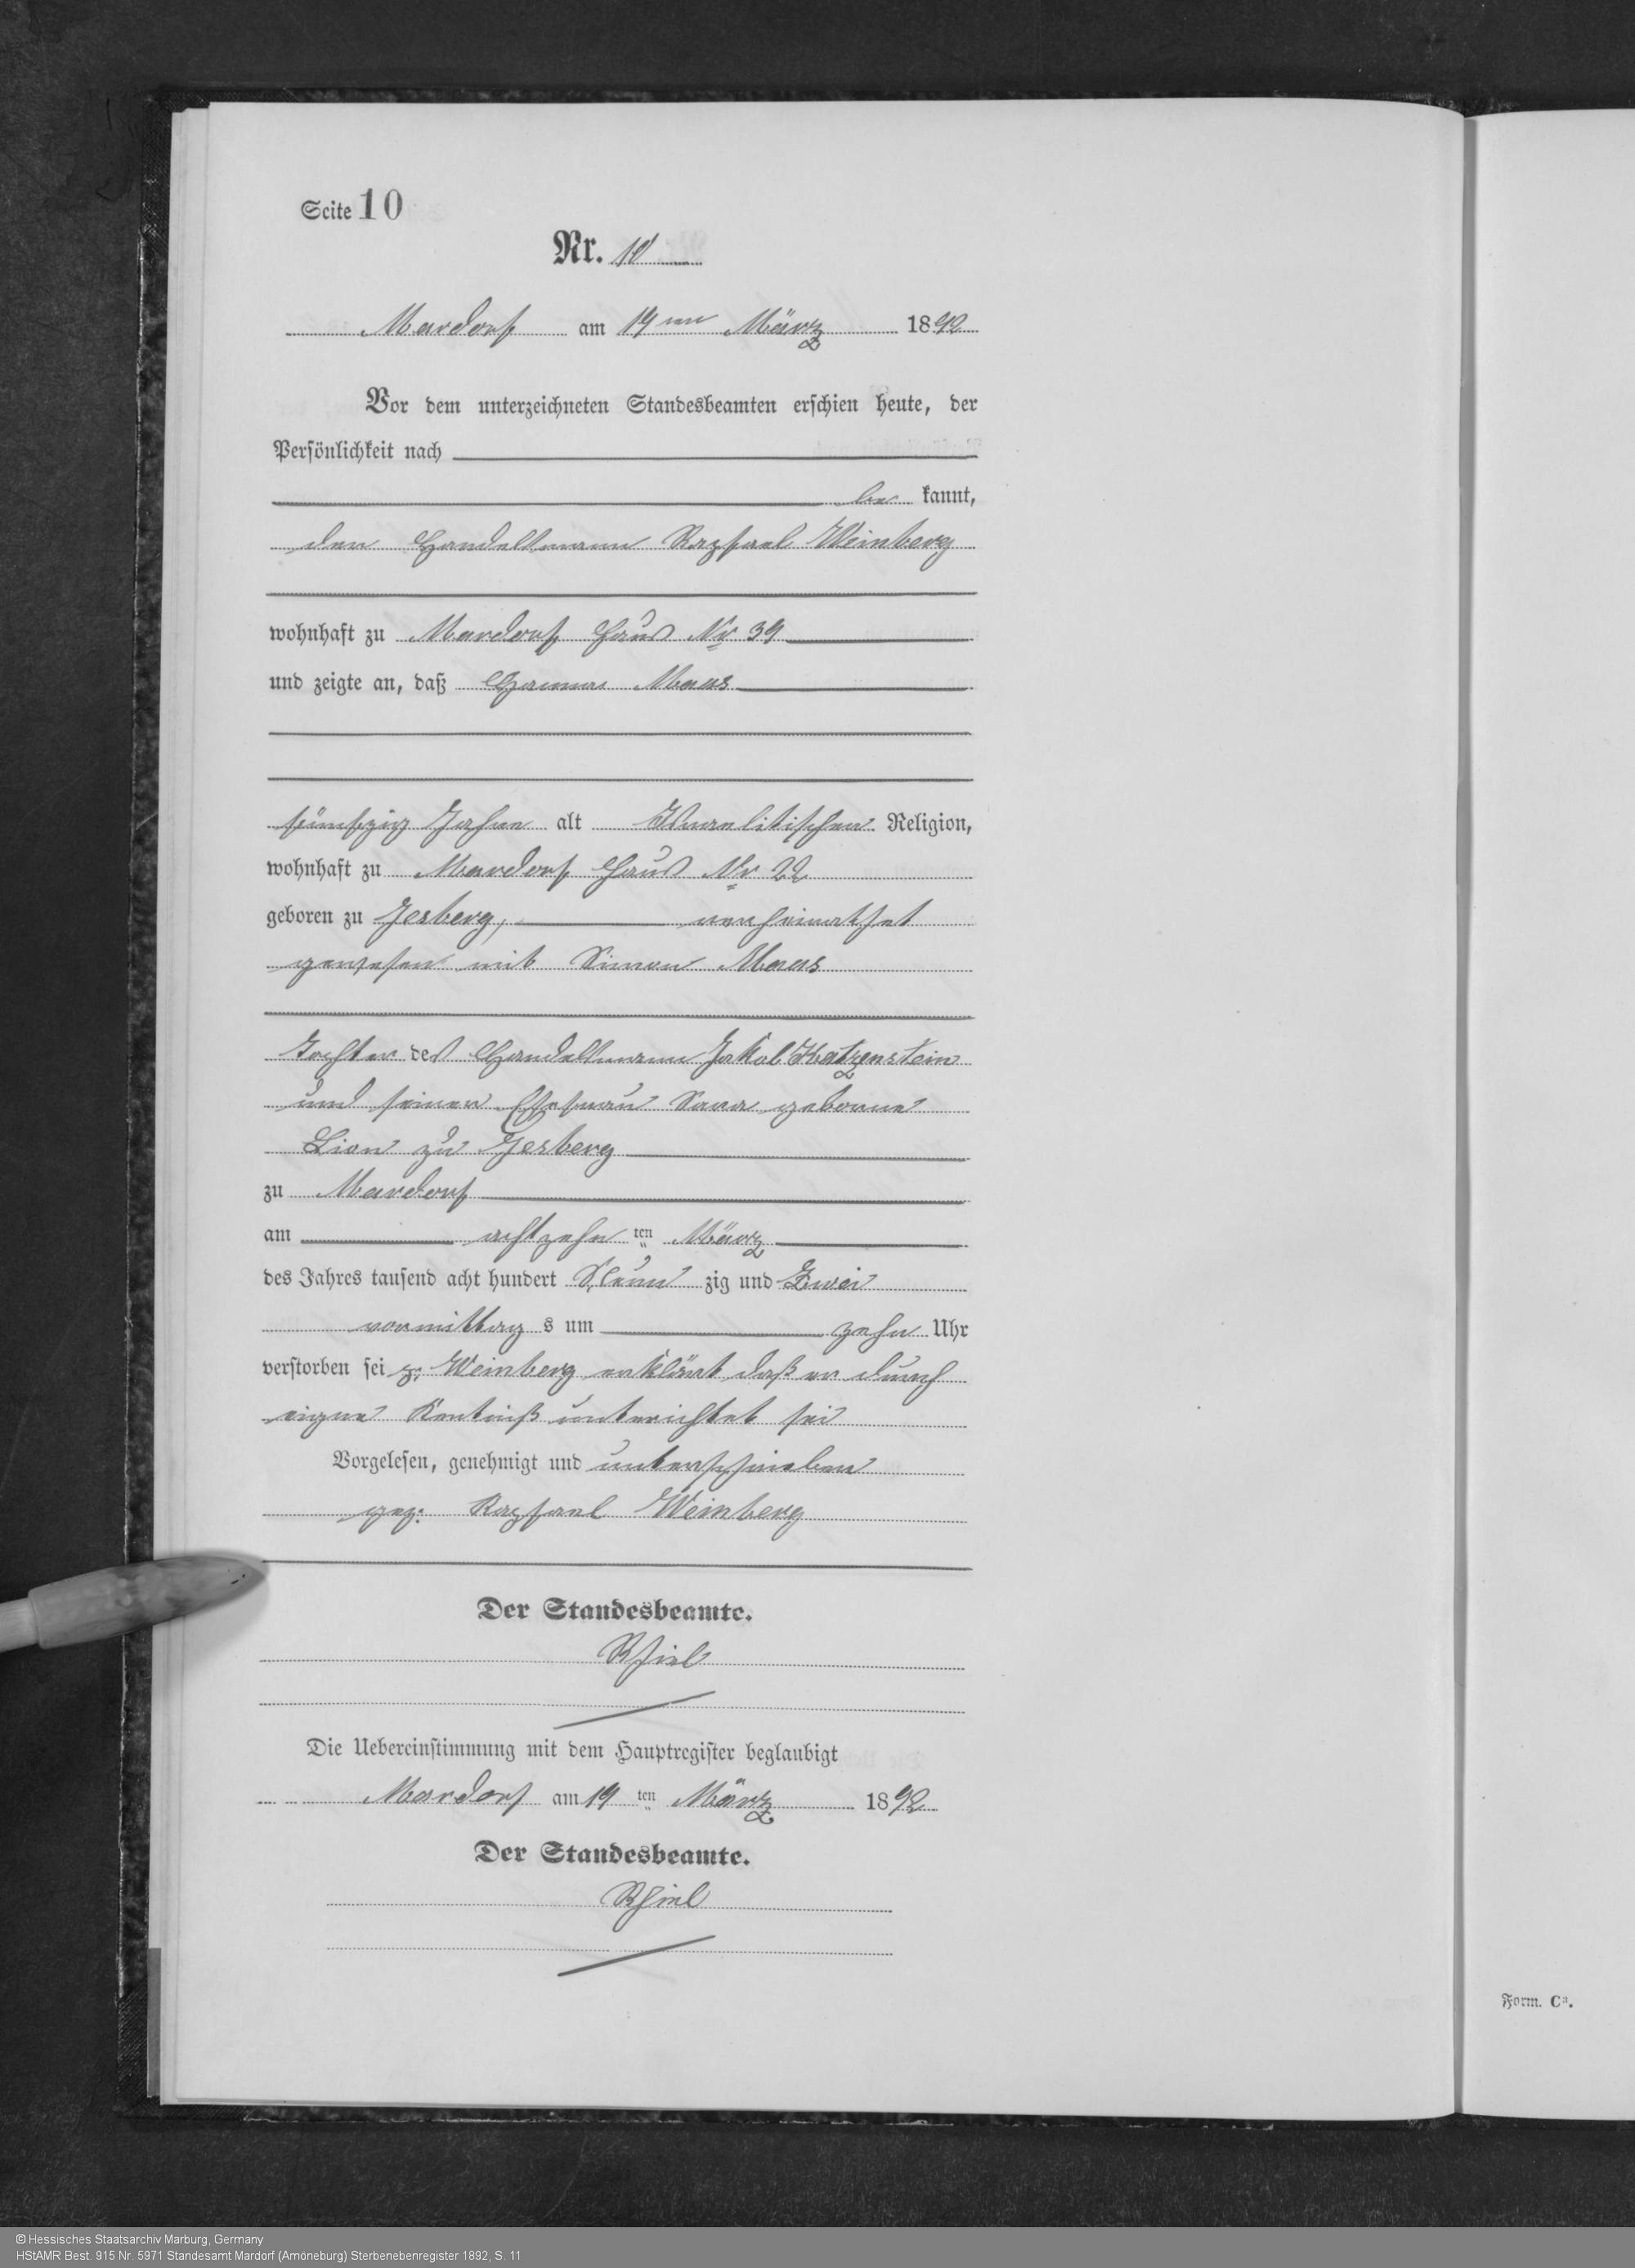 Seite 10
Nr. 10
Mardorf am 19ten März 1892
Vor dem unterzeichneten Standesbeamten erschien heute, der
Persönlichkeit nach
be kannt,
den Handelsmann Raphael Weinberg
wohnhaft zu Mardorf Haus Nr 39
und zeigte an, daß Hanna Maas
fünfzig Jahre alt Israelitischen Religion,
wohnhaft zu Mardorf Haus Nr 22
geboren zu Jesberg, verheirathet
gewesen mit Simon Maas
Tochter des Handelsmann Jakob Katzenstein
und seiner Ehefrau Sara geborne
Lion zu Jesberg
zu Mardorf
am achtzehn ten März
des Jahres tausend acht hundert Neun zig und Zwei
vormittag s um zehn Uhr
verstorben sei Weinberg erklärt daß er durch
eigne Kentniß unterichtet sei
Vorgelesen, genehmigt und unterschrieben
gez: Raphael Weinberg
Der Standesbeamte.
Rhiel
Die Uebereinstimmung mit dem Hauptregister beglaubigt
Mardorf am 19 ten März 1892
Der Standesbeamte.
Rhiel
Form. Ca.
© Hessisches Staatsarchiv Marburg, Germany
HStAMR Best. 915 Nr. 5971 Standesamt Mardorf (Amöneburg) Sterbenebenregister 1892, S. 11